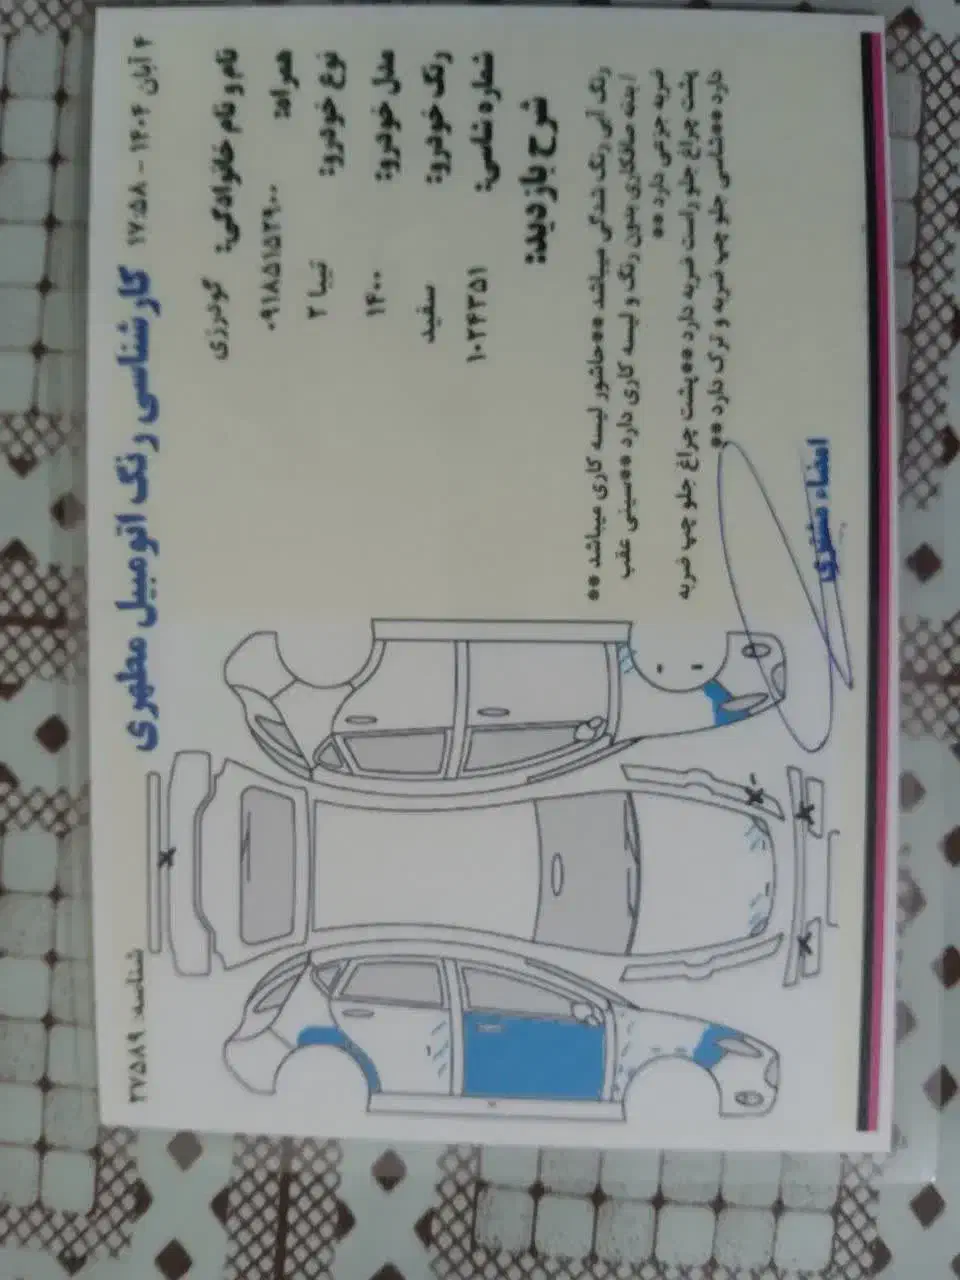 ۴ آبان ۱۴۰۴ - ۱۷:۵۸
کارشناسی رنگ اتومبیل مطهری
شناسه: ۲۷۵۸۹
نام و نام خانوادگی: گودرزی
همراه: ۰۹۱۸۵۱۵۲۹۰۰
نوع خودرو: تیبا ۲
مدل خودرو: ۱۴۰۰
رنگ خودرو: سفید
شماره شاسی: ۱۰۲۴۳۵۱
شرح بازدید:
رنگ آبی رنگ شدگی میباشد **هاشور لیسه کاری میباشد **
/ بدنه صافکاری بدون رنگ و لیسه کاری دارد **سینی عقب
ضربه جزئی دارد **
پشت چراغ جلو راست ضربه دارد **پشت چراغ جلو چپ ضربه
دارد **شاسی جلو چپ ضربه و ترک دارد **
امضاء مشتری